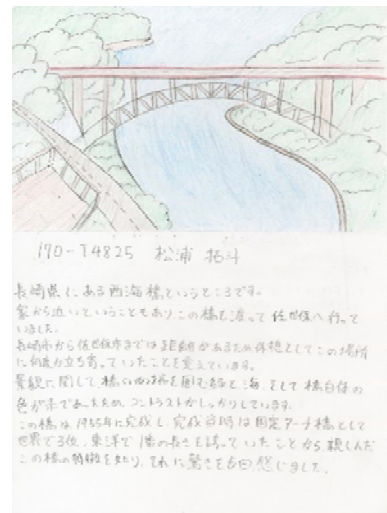 170-T4825 松浦 拓斗
長崎県にある西海橋というところです。
家から近いということもあり、この橋を渡って佐世保へ行って
いました。
長崎市から佐世保市までは距離があるため休憩としてこの場所
に何度か立ち寄っていたことを覚えています。
景観に関して橋を囲む緑と海そして橋自体の
色が赤であったため、コントラストがしっかりしています。
この橋は1955年に完成し、完成当時は固定アーチ橋として
世界で3位、東洋で1番の長さを誇っていたことから、親しんだ
この橋の特徴を知り、それに驚きを感じました。